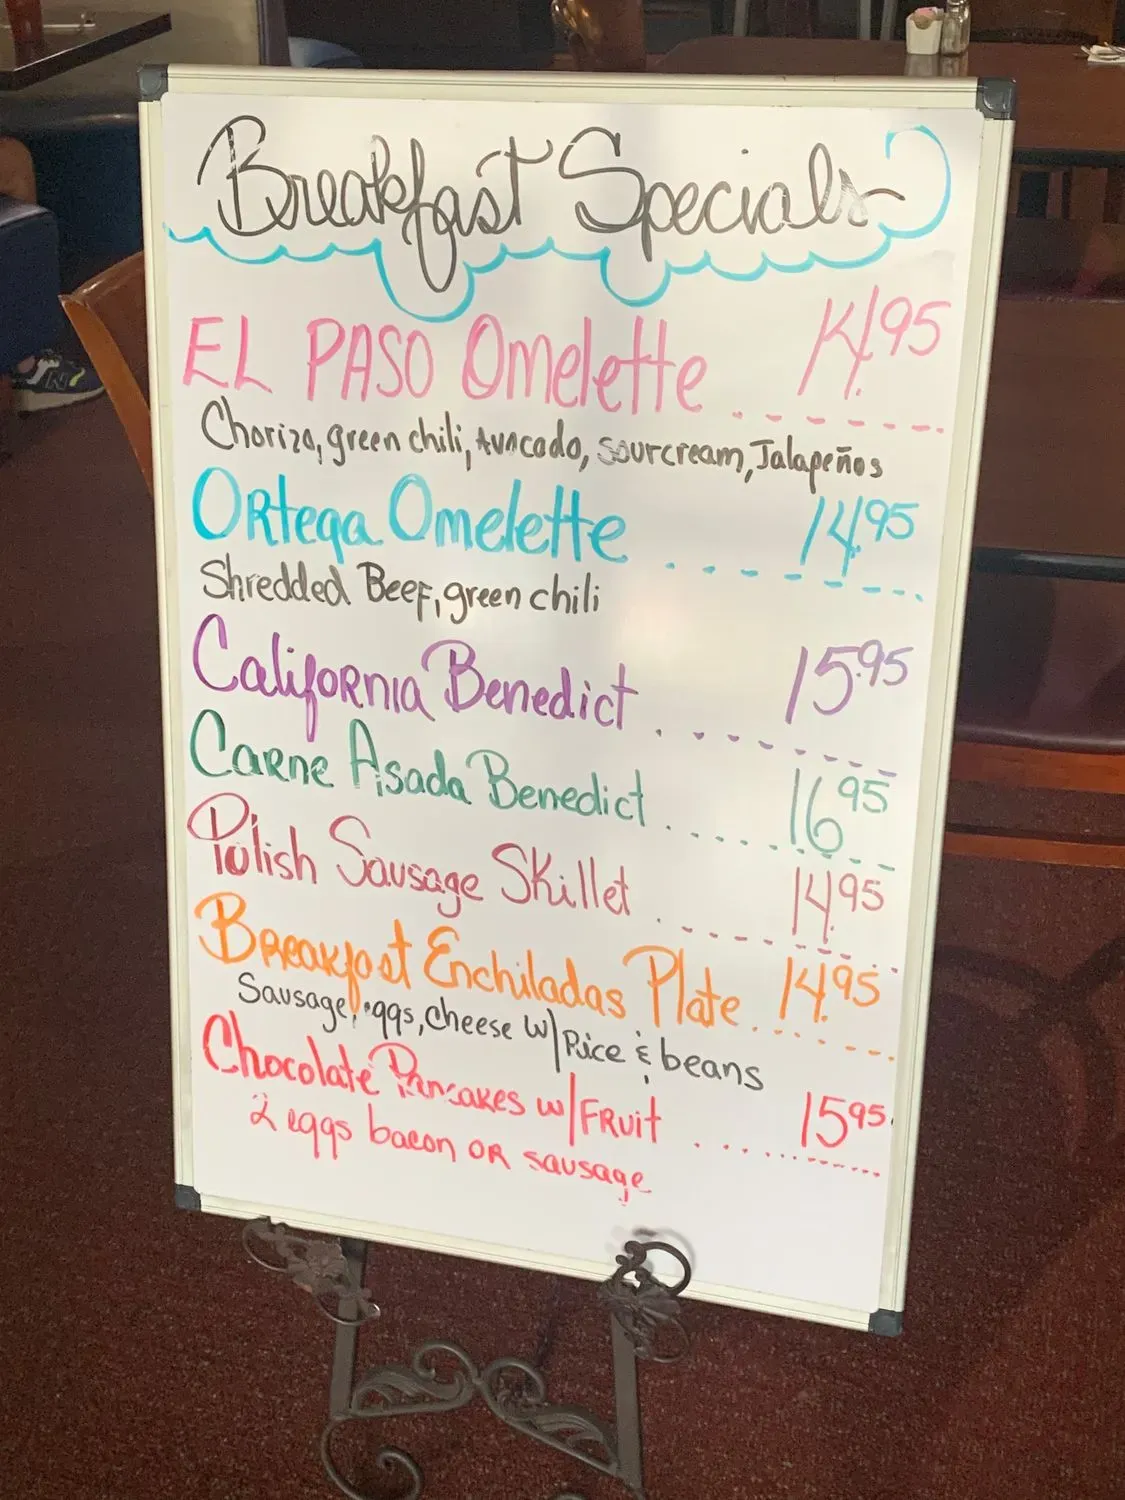 Breakfast Specials
EL PASO Omelette 14.95
Chorizo, green chili, Avacado, sourcream, Jalapeños
Ortega Omelette 14.95
Shredded Beef, green chili
California Benedict 15.95
Carne Asada Benedict 16.95
Polish Sausage Skillet 14.95
Breakfast Enchiladas Plate 14.95
Sausage, eggs, cheese w/Rice & beans
Chocolate Pancakes w/Fruit 15.95
2 eggs bacon or sausage